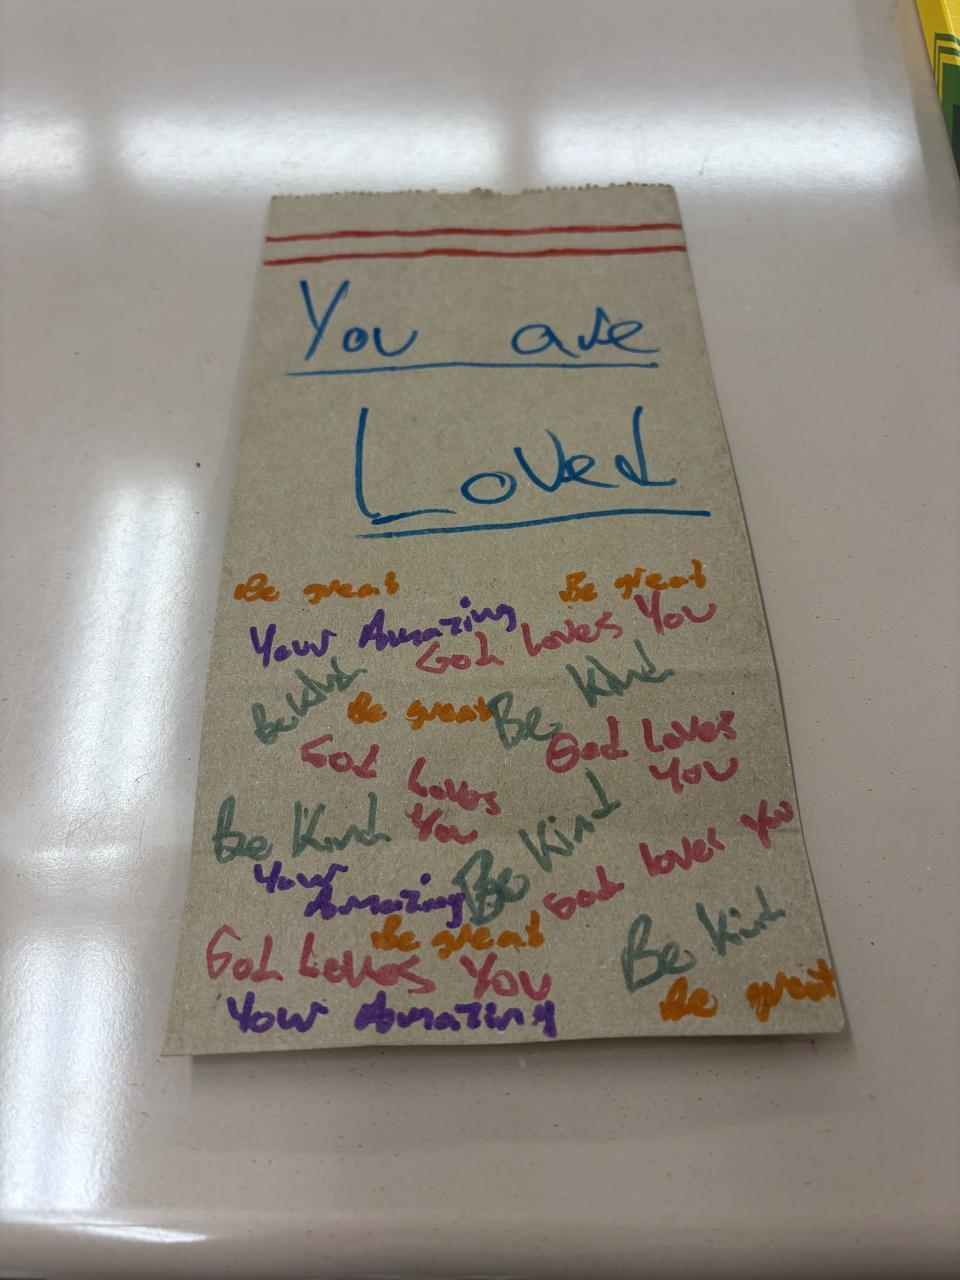 You are
Loved
Be great Be great
Your Amazing God Loves You
Be Kind Be Kind
Be great
God Loves You
God Loves You
Be Kind Be Kind
Your Amazing
God loves You
Be great
Be Kind
God Loves You
Be great
Your Amazing